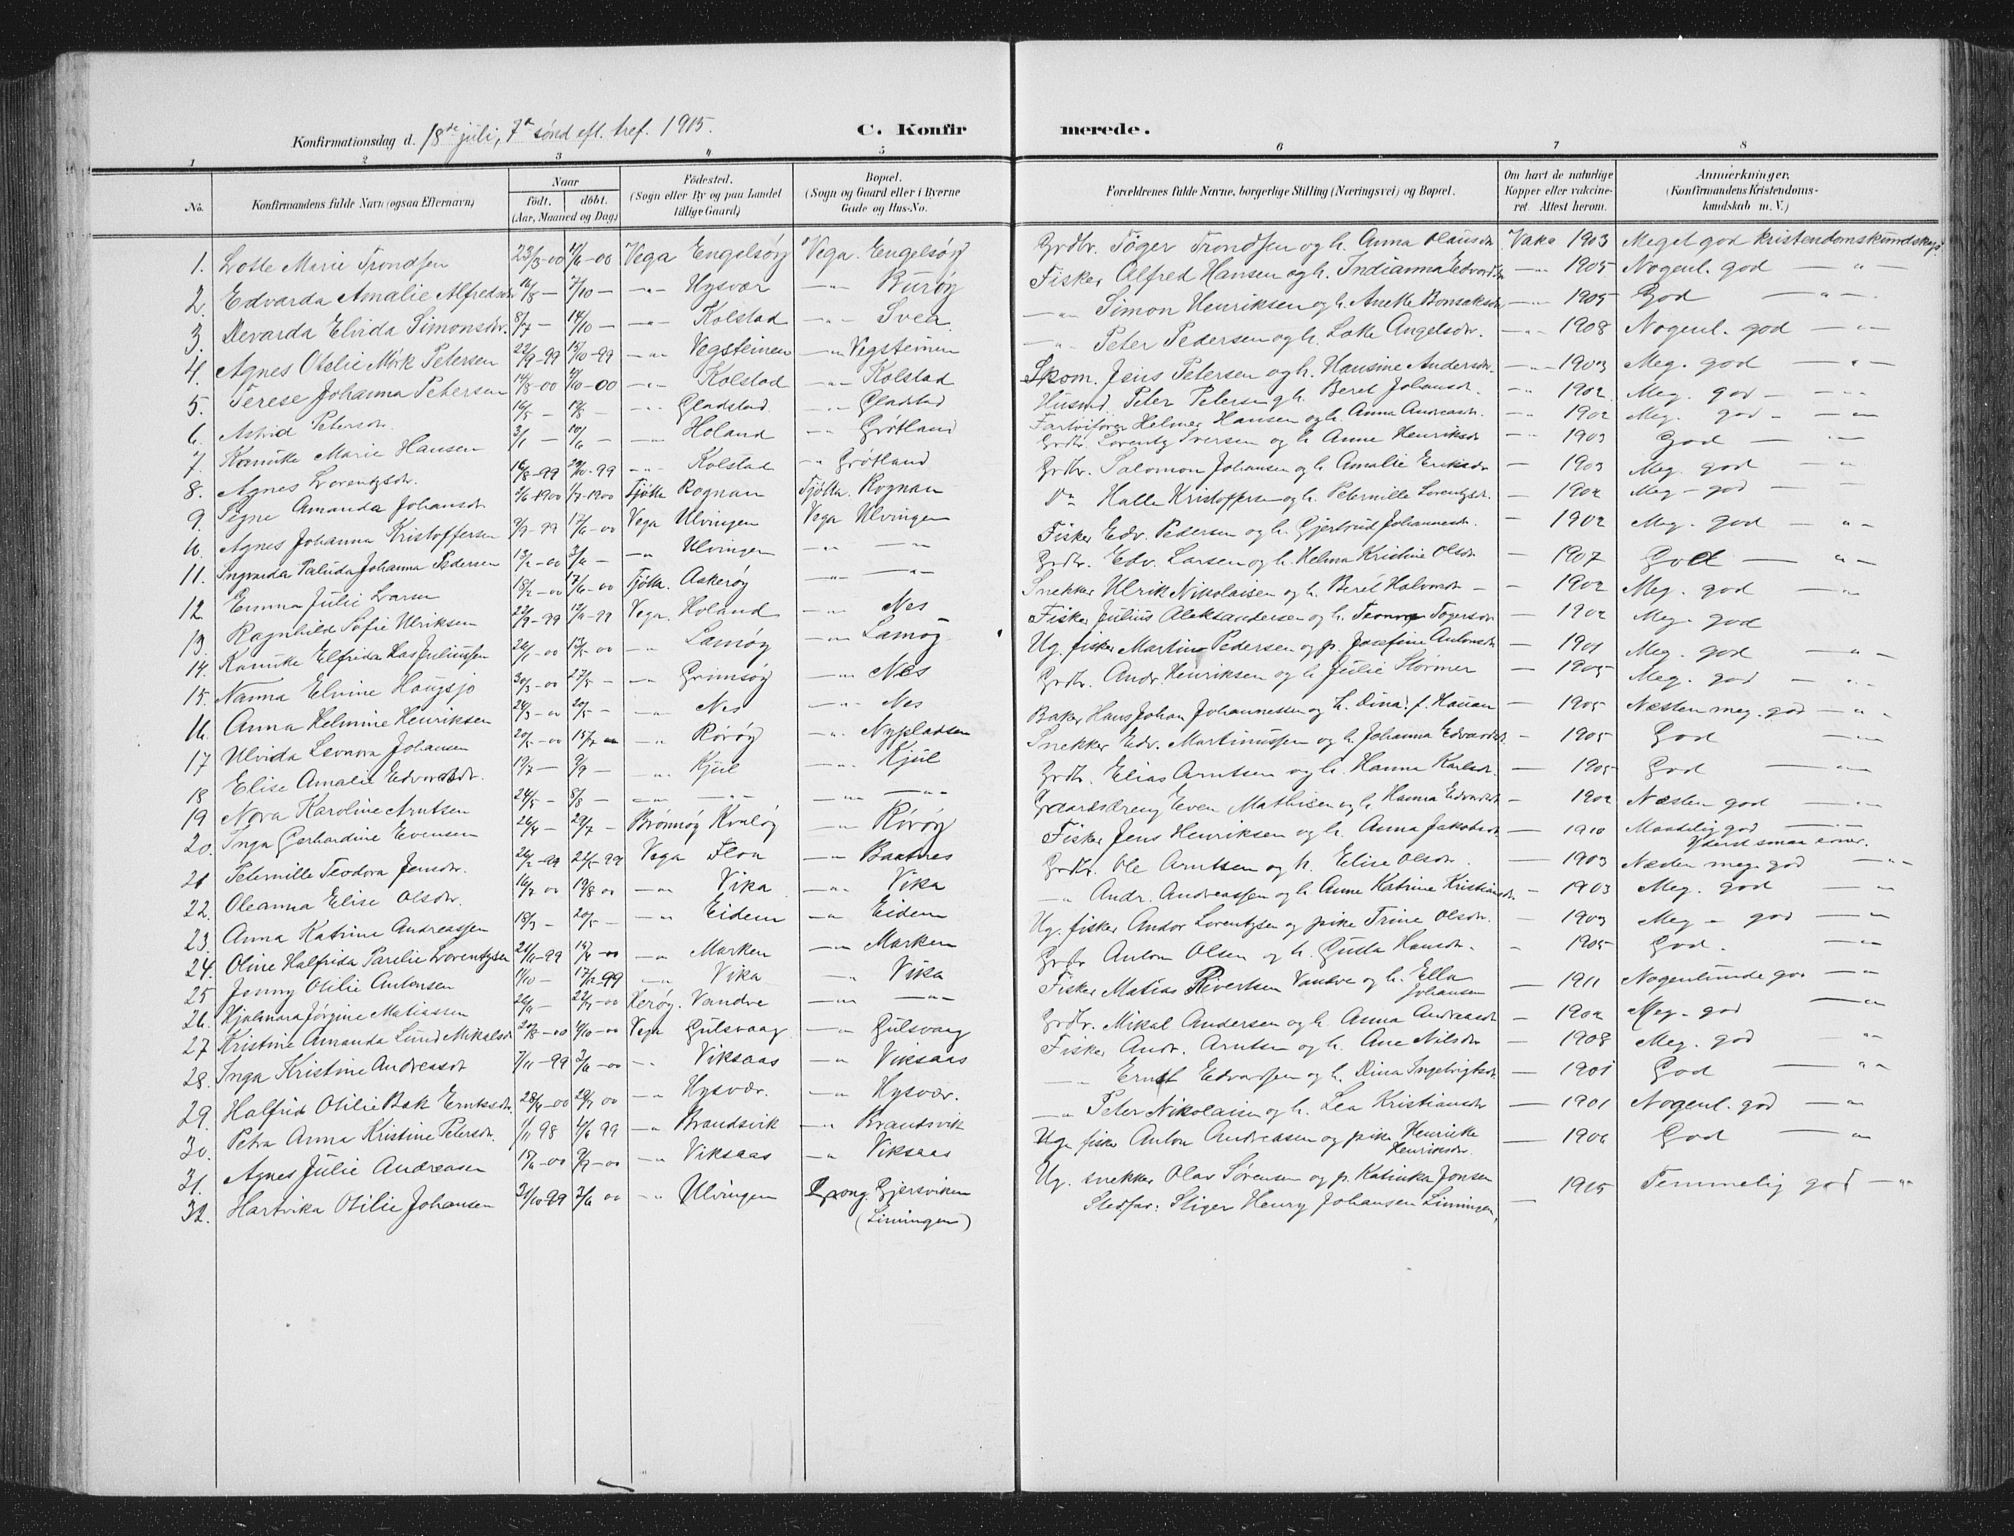 Konfirmationsdag d. 18de juli, 7de sønd eft. tref. 1915.
C. Konfir merede.
1 2 3 4 5 6 7 8
No. Konfirmandens fulde Navn (ogsaa Efternavn) Naar født. døbt. (Aar, Maaned og Dag) Fødested. (Sogn eller By og paa Landet tillige Gaard) Bopæl. (Sogn og Gaard eller i Byerne Gade og Hus-No. Forældrenes fulde Navne, borgerlige Stilling (Næringsvei) og Bopæl. Om havt de naturlige Kopper eller vaccineret. Attest herom. Anmærkninger. (Konfirmandens Kristendomskundskab m. V.)
1. Lotte Marie Trondsen 23/3-00 /6-00 Vega Engelsöy Vega. Engelsöy Grdbr. Töger Trondsen og h. Anna Olausdr Vaks 1903 Meget god kristendomskundskap.
2. Edvarda Amalie Alfredsdr 16/8 — 7/10 — -"- Hysvær -"- Buröy Fisker Alfred Hansen og h. Indianna Edvardsdr -"- 1905 Nogenl. god -"-
3. Devarda Elvida Simonsdr. 8/7 — 14/10 — -"- Kolstad -"- Svea -"- Simon Henriksen og h. Anette Bonsaksdr -"- 1905 God -"-
4. Agnes Otelie Mörk Petersen 22/9-99 15/10-99 -"- Vegsteinen -"- Vegsteinen -"- Peter Pedersen og h. Lotte Angelsdr. -"- 1908 Nogenl. god -"-
5. Terese Johanna Petersen 14/8-00 /10-00 -"- Kolstad -"- Kolstad Skom. Jens Petersen og h. Hansine Andersdr -"- 1903 Meg. god "
6. Astrid Petersdr. 16/5 — 19/8 — -"- Gladstad -"- Gladstad Husmd. Peter Petersen og h. Beret Johansdr. " 1902 Meg. god -"-
7. Kanutte Marie Hansen 3/1 — 10/6 — " Holand " Grötland Helmer Hansen og h. Anna Andreasdr. " 1902 Meg. god -"-
8. Agnes Lorentsdr. 16/8-99 29/10-99 -"- Kolstad " Grötland Grdbr. Lorents Iversen og h. Anne Henriksdr " 1903 God -"-
9. Signe Amanda Johansdr /6-1900 1/7-1900 Tjötta Rognan Tjötta. Rognan Grdbr. Salomon Johansen og h. Amalie Eriksdr — 1903 Meg. god -"-
10. Agnes Johanna Kristoffersen 9/9-99 17/6-00 Vega Ulvingen Vega Ulvingen Do Halle Kristoffersen og h. Peternille Lorentsdr. — 1902 Meg - god -"-
11. Ingvarda Paluda Johanna Pedersen 13/2-00 3/6 — -"- Ulvingen -"- — Fisker Edv. Pedersen og h. Gjertrud Johannesdr. — 1902 Meg. god "
12. Emma Julie Larsen 18/2-00 17/6-00 Tjötta. Askeröy -"- -"- Grdbr. Edv. Larsen og h. Helma Kristine Olsdr — 1907 God -"-
13. Ragnhild Sofie Ulriksen 22/9-99 12/11-99 Vega. Holand -"- Nes Snekker Ulrik Nikolaisen og h. Beret Halvorsdr. — 1902 Meg. god -"-
14. Kanutte Elfrida Juliussen 26/1-00 13/5-00 -"- Lamöy -"- Lamöy Fisker Julius Aleksandersen og h. Togersdr — 1902 Meg. god
15. Nanna Elvine Haugsjo 30/3-00 27/5 — -"- Grimsöy -"- Nes Ug. fisker Martin Pedersen og p. Josefine Antonsdr — 1901 Meg. god -"-
16. Anna Helmine Henriksen 24/3-00 20/5 — " Nes -"- Nes Grdbr. Andr. Henriksen og h. Julie Störmer — 1905 Meg. god -"-
17 Ulvida Leonora Johansen 20/5-00 15/7 — " Röröy " Nypladsen Baker Hans Johan Johannessen og h. Dina f. Hauan — 1905 Næsten meg. god -"-
18 Elise Amalie Edvardsdr. 19/7 — 9/9 — " Kjul " Kjul Snekker Edv. Martinussen og h. Johanna Edvardsdr — 1905 God -"-
19 Nora Karoline Arntsen 24/5 — 8/8 — -"- -"- -"- -"- Grdbr. Elias Arntsen og h. Hanna Karlsdr. — 1905 God -"-
20. Inga Gerhardine Evensen 26/4 — 29/7 — Brönnöy Kvalöy -"- Röröy Gaardsdreng Even Mathisen og h. Hanna Edvardsdr — 1902 Næsten god -"-
21 Peternille Teodora Jensdr. 26/2-99 22/5-99 Vega Floa -"- Baatnes Fisker Jens Henriksen og h. Anna Jakobsdr — 1910 Maadelig god Yderst smaa evner.
22. Oleanna Elise Olsdr. 16/7 00 19/8 00 -"- Vika -"- Vika Grdbr. Ole Arntsen og h. Elise Olsdr. — 1903 Næsten meg. god -"-
23 Anna Katrine Andreassen 18/3 — 20/5 — -"- Eidem -"- Eidem -"- Andr. Andreassen og h. Anne Katrine Kristiansdr — 1903 Meg. god -"-
24. Oline Halfrida Parelie Lorentsen 21/11-99 15/4-00 " Marken -"- Marken Ug. fisker Andor Lorentsen og pike Trine Olsdr. — 1903 Meg - god -"-
25 Jenny Otilie Antonsen 1/10 — 17/12-99 -"- Vika -"- Vika Grdbr Anton Olsen og h. Gusta Hansdr. - 1905 God. -"-
26. Hjalmara Jörgine Matiassen 26/1 — 22/7-00 Heröy. Vandve -"- -"- Fisker Matias Rivertsen Vandve og h. Ella Johansen — 1911 Nogenlunde god -"-
27 Kristine Amanda Lund Mikalsdr 20/8-00 4/10-00 Vega Gulsvaag -"- Gulsvaag Grdbr. Mikal Andersen og h. Anna Andreasdr — 1902 Meg. god -"-
28. Inga Kristine Andreasdr 7/11-99 3/6-00 " Viksaas -"- Viksaas Fisker Andr. Arntsen og h. Ane Nilsdr — 1908 Meg. god "
29. Halfrid Otilie Bak Erntsdr. 28/4-00 29/7 00 -"- Hysvær. -"- Hysvær. -"- Ernst Edvardsen og h. Dina Ingebrigtsdr. — 1901 God "
30. Petra Anna Kristine Petersdr. 1/11 98 4/6 99 -"- Brandsvik -"- Brandsvik -"- Peter Nikolaisen og h. Lea Kristiansdr — 1901 Nogenl. god -"-
31. Agnes Julie Andreasen 15/6-00 9/7-00 -"- Viksaas " Viksaas Ug. fisker Anton Andreasen og pike Henrikke Henriksdr. — 1906 God -"-
32. Hartvika Otilie Johansen 31/10-99 3/6 00 " Ulvingen Grong. Gjersviken (Limingen) Ug. snekker Olav Sørensen og p. Katinka Jonsen Stedfar: Stiger Henry Johansen Limingen, — 1915 Temmelig god -"-